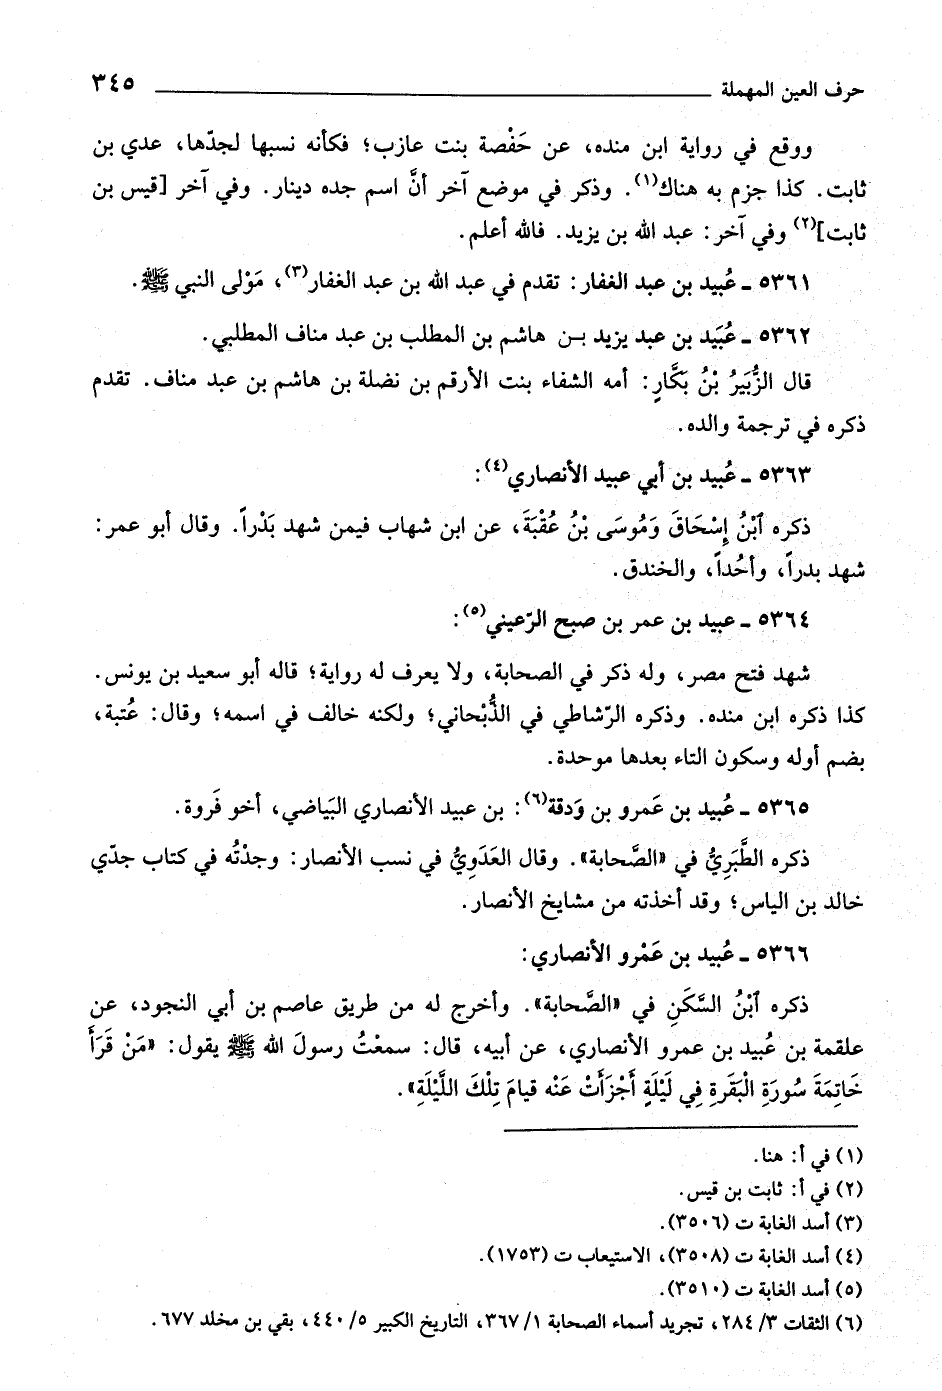 حرف العين المهملة ٣٤٥
ووقع في رواية ابن منده، عن حَفْصة بنت عازب؛ فكأنه نسبها لجدّها، عدي بن
ثابت. كذا جزم به هناك(١). وذكر في موضع آخر أنَّ اسم جده دينار. وفي آخر [قيس بن
ثابت](٢) وفي آخر: عبد الله بن يزيد. فالله أعلم.
٥٣٦١ ـ عُبيد بن عبد الغفار: تقدم في عبد الله بن عبد الغفار(٣)، مَوْلى النبي ﷺ.
٥٣٦٢ ـ عُبَيَد بن عبد يزيد بـن هاشم بن المطلب بن عبد مناف المطلبي.
قال الزُّبَيَرُ بْنُ بَكَّارٍ: أمه الشفاء بنت الأرقم بن نضلة بن هاشم بن عبد مناف. تقدم
ذكره في ترجمة والده.
٥٣٦٣ ـ عُبيد بن أبي عبيد الأنصاري(٤):
ذكره ٱبْنُ إِسْحَاقَ وَمُوسَى بْنُ عُقْبَةَ، عن ابن شهاب فيمن شهد بَدْراً. وقال أبو عمر:
شهد بدراً، وأحُداً، والخندق.
٥٣٦٤ ـ عبيد بن عمر بن صبح الرّعيني(٥):
شهد فتح مصر، وله ذكر في الصحابة، ولا يعرف له رواية؛ قاله أبو سعيد بن يونس.
كذا ذكره ابن منده. وذكره الرّشاطي في الذُّبْحاني؛ ولكنه خالف في اسمه؛ وقال: عُتبة،
بضم أوله وسكون التاء بعدها موحدة.
٥٣٦٥ ـ عُبيد بن عَمرو بن وَدقة(٦): بن عبيد الأنصاري البَياضي، أخو فَروة.
ذكره الطَّبَرِيُّ في «الصَّحابة». وقال العَدَوِيُّ في نسب الأنصار: وجدْتُه في كتاب جدّي
خالد بن الياس؛ وقد أخذته من مشايخ الأنصار.
٥٣٦٦ ـ عُبيد بن عَمْرو الأنصاري:
ذكره ٱبْنُ السَّكَنِ في «الصَّحابة». وأخرج له من طريق عاصم بن أبي النجود، عن
علقمة بن عُبيد بن عمرو الأنصاري، عن أبيه، قال: سمعْتُ رسولَ الله ﷺ يقول: «مَنْ قَرَأَ
خَاتِمَةَ سُورَةِ الْبَقَرةِ فِي لَيْلَةٍ أَجْزَأَتْ عَنْه قيامَ تِلْكَ اللَّيْلَةِ».
(١) في أ: هنا.
(٢) في أ: ثابت بن قيس.
(٣) أسد الغابة ت (٣٥٠٦).
(٤) أسد الغابة ت (٣٥٠٨)، الاستيعاب ت (١٧٥٣).
(٥) أسد الغابة ت (٣٥١٠).
(٦) الثقات ٣/ ٢٨٤، تجريد أسماء الصحابة ١/ ٣٦٧، التاريخ الكبير ٥/ ٤٤٠، بقي بن مخلد ٦٧٧.